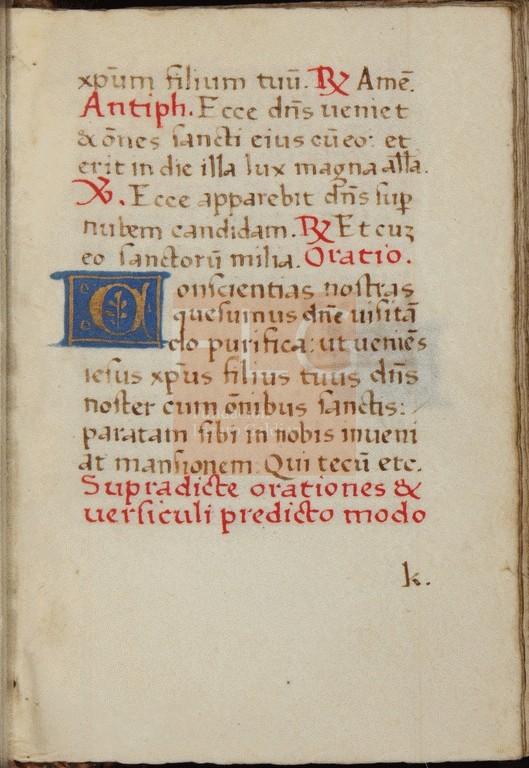 xp̄um filium tuū. R̸ Amē.
Antiph. Ecce dn̄s ueniet
& ōnes sancti eius cū eo: et
erit in die illa lux magna all̄a.
V̸. Ecce apparebit dn̄s suꝑ
nubem candidam. R̸ Et cuz
eo sanctorū milia. Oratio.
Conscientias nostras
quesumus dn̄e uisitā
do purifica: ut ueniēs
iesus xp̄us filius tuus dn̄s
noster cum ōnibus sanctis:
paratam sibi in nobis inueni
at mansionem. Qui tecū etc.
Supradicte orationes &
uersiculi predicto modo
k.